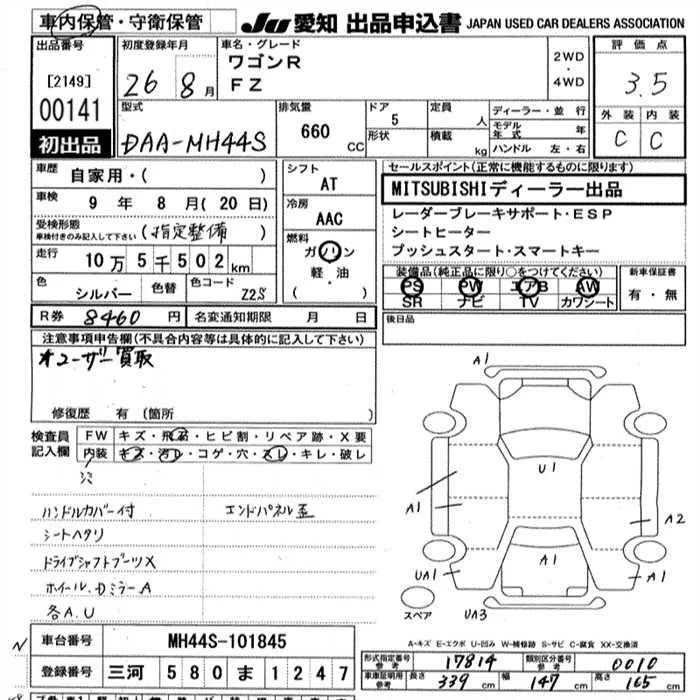 車内保管・守衛保管
JU 愛知 出品申込書 JAPAN USED CAR DEALERS ASSOCIATION
出品番号
[2149]
00141
初出品
初度登録年月
26 8月
車名・グレード
ワゴンR
FZ
2WD
・
4WD
評価点
3.5
外装 内装
C C
型式
DAA-MH44S
排気量
660 CC
ドア
5
形状
定員
人
積載
kg
ディーラー・並行
モデル年式 年
ハンドル 左・右
車歴
自家用・( )
車検
9年 8月(20日)
受検形態
車検付きのみ記入して下さい
(指定整備)
走行
10万5千502km
色
シルバー
色替
色コード
Z2S
シフト
AT
冷房
AAC
燃料
ガソリン
軽・油
( )
セールスポイント(正常に機能するものに限ります)
MITSUBISHIディーラー出品
レーダーブレーキサポート・ESP
シートヒーター
プッシュスタート・スマートキー
装備品(純正品に限り○をつけてください)
PS PW エアB AW
SR ナビ TV カワシート
新車保証書
有・無
R券 8460円
名変通知期限 月 日
後日品
注意事項申告欄(不具合内容等は具体的に記入して下さい)
ユーザー買取
修復歴 有(箇所
検査員
記入欄
FW キズ・飛石・ヒビ割・リペア跡・X要
内装 キズ・汚レ・コゲ・穴・スレ・キレ・破レ
ハンドルカバー付
エンドパネル歪
シートヘタリ
ドライブシャフトブーツX
ホイール、DミラーA
各A.U
A1
U1
A1
A2
A1
UA1
A1
スペア
UA3
A-キズ E-エクボ U-凹み W-補修跡 S-サビ C-腐食 XX-交換済
車台番号
MH44S-101845
登録番号
三河 580 ま 1247
形式指定番号
参考
17814
類別区分番号
参考
0010
車庫証明用
参考
長さ 339 cm
幅 147 cm
高さ 165 cm